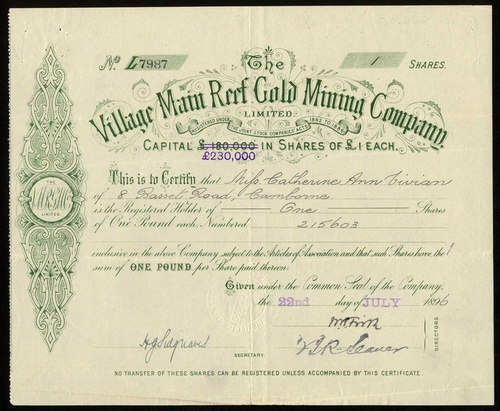 No L7987
1 SHARES.
The
Village Main Reef Gold Mining Company,
LIMITED
REGISTERED UNDER THE JOINT STOCK COMPANIES' ACTS 1862 TO 1890
CAPITAL £ 180,000 IN SHARES OF £1 EACH.
£230,000
This is to Certify that Miss Catherine Ann Vivian
of 8 Basset Road, Camborne
is the Registered Holder of One Shares
of One Pound each, Numbered 215603
inclusive in the above Company subject to the Articles of Association and that such Shares have the
sum of ONE POUND per Share paid thereon.
Given under the Common Seal of the Company,
the 22nd day of JULY 1896
DIRECTORS.
SECRETARY.
THE
LIMITED
NO TRANSFER OF THESE SHARES CAN BE REGISTERED UNLESS ACCOMPANIED BY THIS CERTIFICATE.